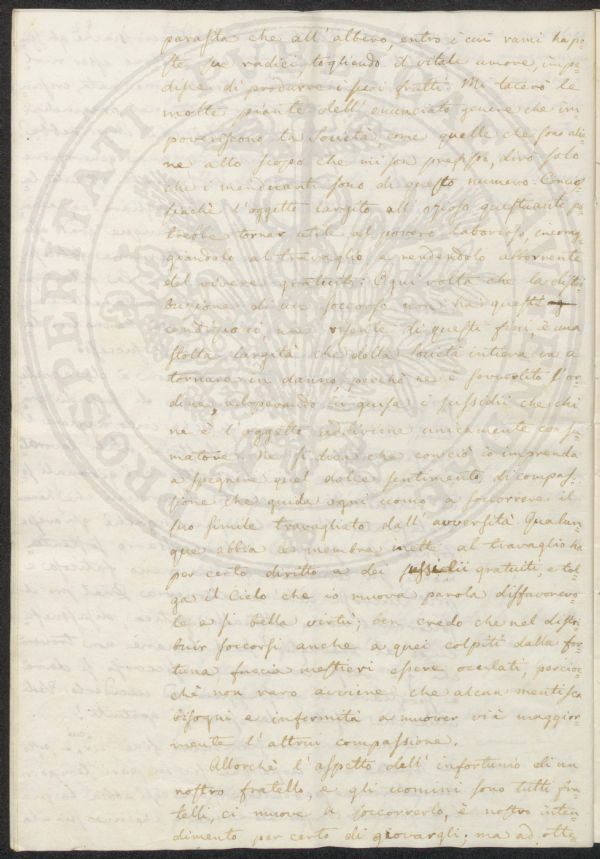 parasita che all'albero, entro i cui rami ha po-
ste sue radici, togliendo il vitale umore, impe-
disce di produrre i suoi frutti. Mi tacerò le
molte piante dell'enunciato genere che im-
poveriscono la Società, come quelle che sono alie-
ne allo scopo che mi son prefisso, dirò solo
che i mendicanti sono di questo numero. Concios-
siachè l'oggetto largito all'ozioso questuante po-
trebbe tornar utile al povero laborioso, incorag-
giandolo al travaglio e rendendolo abborrente
del vivere gratuito. Ogni volta che la distri-
buzione di un soccorso non ha queste
condizioni, nè risente di questi fini è una
stolta largità che della Società intiera va a
tornare in danno, perchè ne è sconvolto l'or-
dine, adoperando in guisa i sussidii che chi
ne è l'oggetto addiviene unicamente consu-
matore. Nè si dica che con ciò io imprenda
a spegnere quel dolce sentimento di compas-
sione che guida ogni uomo a soccorrere il
suo simile travagliato dall'avversità. Qualun-
que abbia le membra inette al travaglio ha
per certo diritto a dei sussidii gratuiti, e tol-
ga il Cielo che io muova parola disfavorevo-
le a sì bella virtù; ben credo che nel distri-
buir soccorsi anche a quei colpiti dalla for-
tuna faccia mestieri essere occulati, percioc-
chè non raro avviene che alcun mentisca
bisogni e infermità a muover via maggior-
mente l'altrui compassione.
Allorchè l'aspetto dell'infortunio di un
nostro fratello, e gli uomini sono tutti fra-
telli, ci muove a soccorrerlo, è nostro inten-
dimento per certo di giovargli; ma ad otte-
PROSPERITATI PUBLICAE